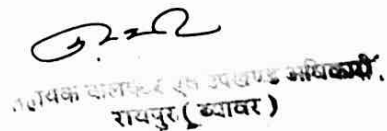 सहायक कलक्टर एवं उपखण्ड अधिकारी,
रायपुर (ब्यावर)